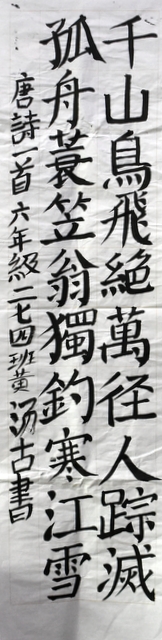 千山鳥飛絕萬径人踪滅
孤舟蓑笠翁獨釣寒江雪
唐詩一首 六年級二七四班黃湧古書